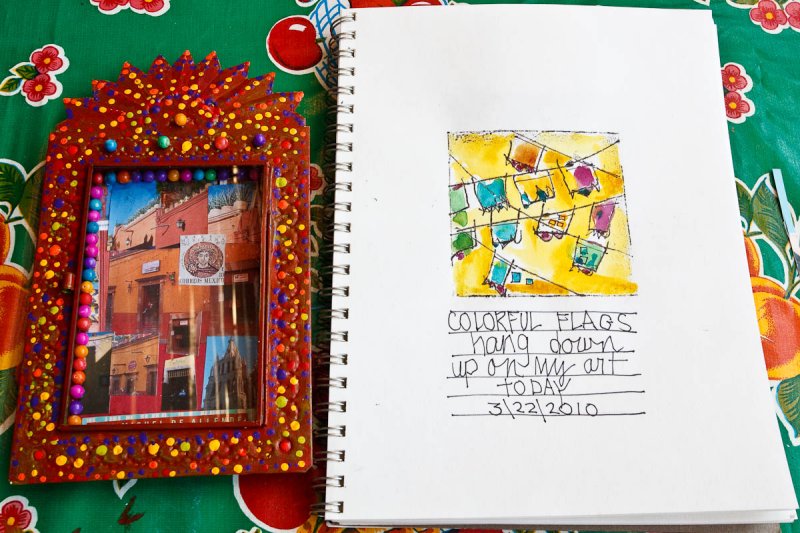 CORREOS MEXICO
MIGUEL DE ALLENDE
COLORFUL FLAGS
hang down
up on my art
TODAY
3/22/2010